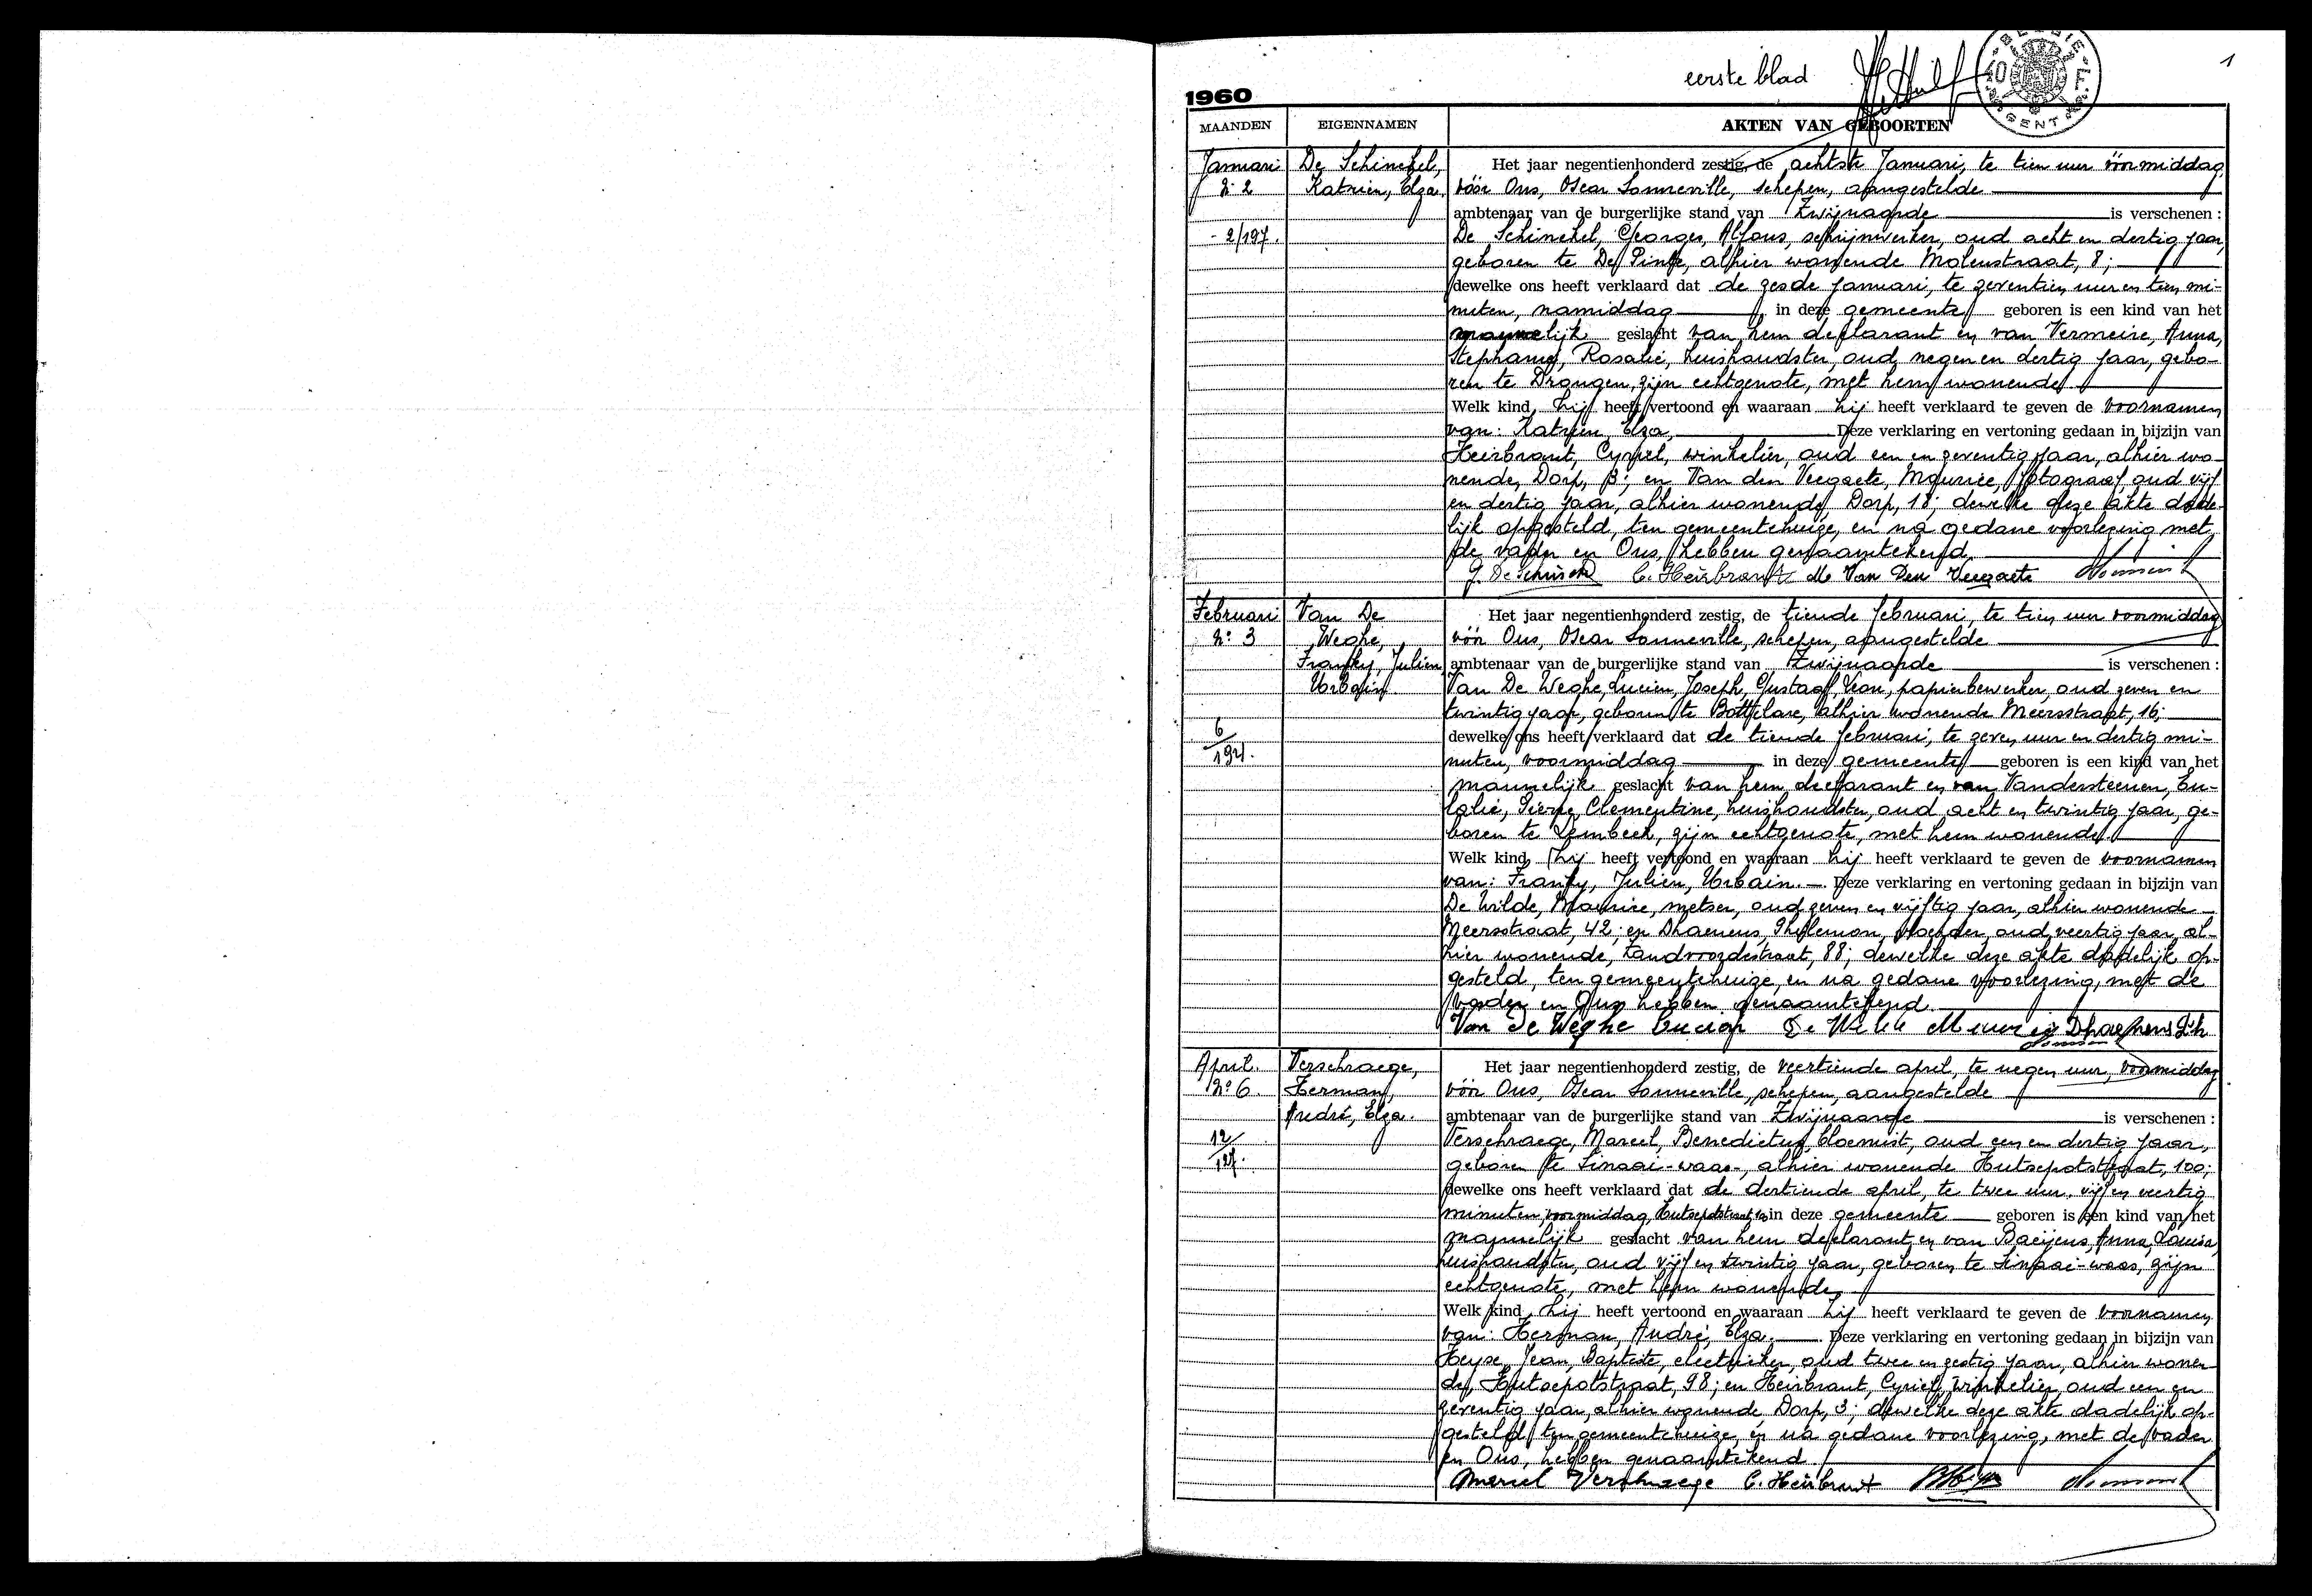 1
eerste blad
BELGIE
GENT
1960
MAANDEN EIGENNAMEN AKTEN VAN GEBOORTEN
Januari De Schinckel, Het jaar negentienhonderd zestig, de achtste Januari, te tien uur vóórmiddag
N: 2 Katrien, Elza. vóór Ons, Oscar Sonneville, schepen, aangestelde
ambtenaar van de burgerlijke stand van Zwijnaarde is verschenen :
- 2/197. De Schinckel, Georges, Alfons, schrijnwerker, oud acht en dertig jaar,
geboren te De Pinte, alhier wonende Molenstraat, 8;
dewelke ons heeft verklaard dat de zesde januari, te zeventien uur en tien mi-
nuten, namiddag in deze gemeente geboren is een kind van het
geslacht van hem declarant en van Vermeire, Anna,
Stephanie, Rosalie, huishoudster, oud negen en dertig jaar, gebo-
ren te Drongen, zijn echtgenote, met hem wonende
Welk kind hij heeft vertoond en waaraan hij heeft verklaard te geven de voornamen
van: Katrien, Elza, Deze verklaring en vertoning gedaan in bijzijn van
Heirbrant, Cyriel, winkelier, oud een en zeventig jaar, alhier wo-
nende, Dorp, 3; en Van den Veegaete, Maurice, fotograaf, oud vijf
en dertig jaar, alhier wonende, Dorp, 18; dewelke deze akte dade-
lijk opgesteld, ten gemeentehuize, en na gedane voorlezing met
de vader en Ons, hebben genaamtekend.
G. De Schinckel C. Heirbrant M. Van Den Veegaete
Februari Van De Het jaar negentienhonderd zestig, de tiende februari, te tien uur voormiddag
N: 3 Weghe, vóór Ons, Oscar Sonneville, schepen, aangestelde
Franky, Julien ambtenaar van de burgerlijke stand van Zwijnaarde is verschenen :
Urbain Van De Weghe, Lucien, Joseph, Gustaaf, Leon, papierbewerker, oud zeven en
twintig jaar, geboren te Bottelare, alhier wonende Meersstraat, 16;
6/197. dewelke ons heeft verklaard dat de tiende februari, te zeven uur en dertig mi-
nuten, voormiddag in deze gemeente geboren is een kind van het
mannelijk geslacht van hem declarant en van Vandersteenen, Eu-
lalie, Pierre, Clementine, huishoudster, oud acht en twintig jaar, ge-
boren te Lembeek, zijn echtgenote, met hem wonende
Welk kind hij heeft vertoond en waaraan hij heeft verklaard te geven de voornamen
van: Franky, Julien, Urbain. Deze verklaring en vertoning gedaan in bijzijn van
De Wilde, Maurice, metser, oud zeven en vijftig jaar, alhier wonende
Meersstraat, 42; en Dhaenens, oud veertig jaar, al-
hier wonende, Tandvoordestraat, 88; dewelke deze akte dadelijk op-
gesteld, ten gemeentehuize, en na gedane voorlezing, met de
vader en Ons hebben genaamtekend.
Van De Weghe Lucien De Wilde Maurice Dhaenens
April. Verschraege, Het jaar negentienhonderd zestig, de veertiende april, te negen uur, voormiddag
N: 6. Herman, vóór Ons, Oscar Sonneville, schepen, aangestelde
André, Elza. ambtenaar van de burgerlijke stand van Zwijnaarde is verschenen :
12/197. Verschraege, Marcel, Benedictus, bloemist, oud een en dertig jaar,
geboren te Sinaai-waas, alhier wonende Hutsepotstraat, 100;
dewelke ons heeft verklaard dat de dertiende april, te twee uur, vijf en veertig
minuten, voormiddag, Hutsepotstraat in deze gemeente geboren is een kind van het
mannelijk geslacht van hem declarant en van Baeijens, Anna, Louisa,
huishoudster, oud vijf en twintig jaar, geboren te Sinaai-waas, zijn
echtgenote, met hem wonende,
Welk kind hij heeft vertoond en waaraan hij heeft verklaard te geven de voornamen
van: Herman, André, Elza. Deze verklaring en vertoning gedaan in bijzijn van
Heyse, Jean, Baptiste, electrieker, oud twee en zestig jaar, alhier wonen-
de, Hutsepotstraat, 98; en Heirbrant, Cyriel, winkelier, oud een en
zeventig jaar, alhier wonende, Dorp, 3; dewelke deze akte dadelijk op-
gesteld ten gemeentehuize, en na gedane voorlezing, met de vader
en Ons, hebben genaamtekend.
Marcel Verschraege C. Heirbrant